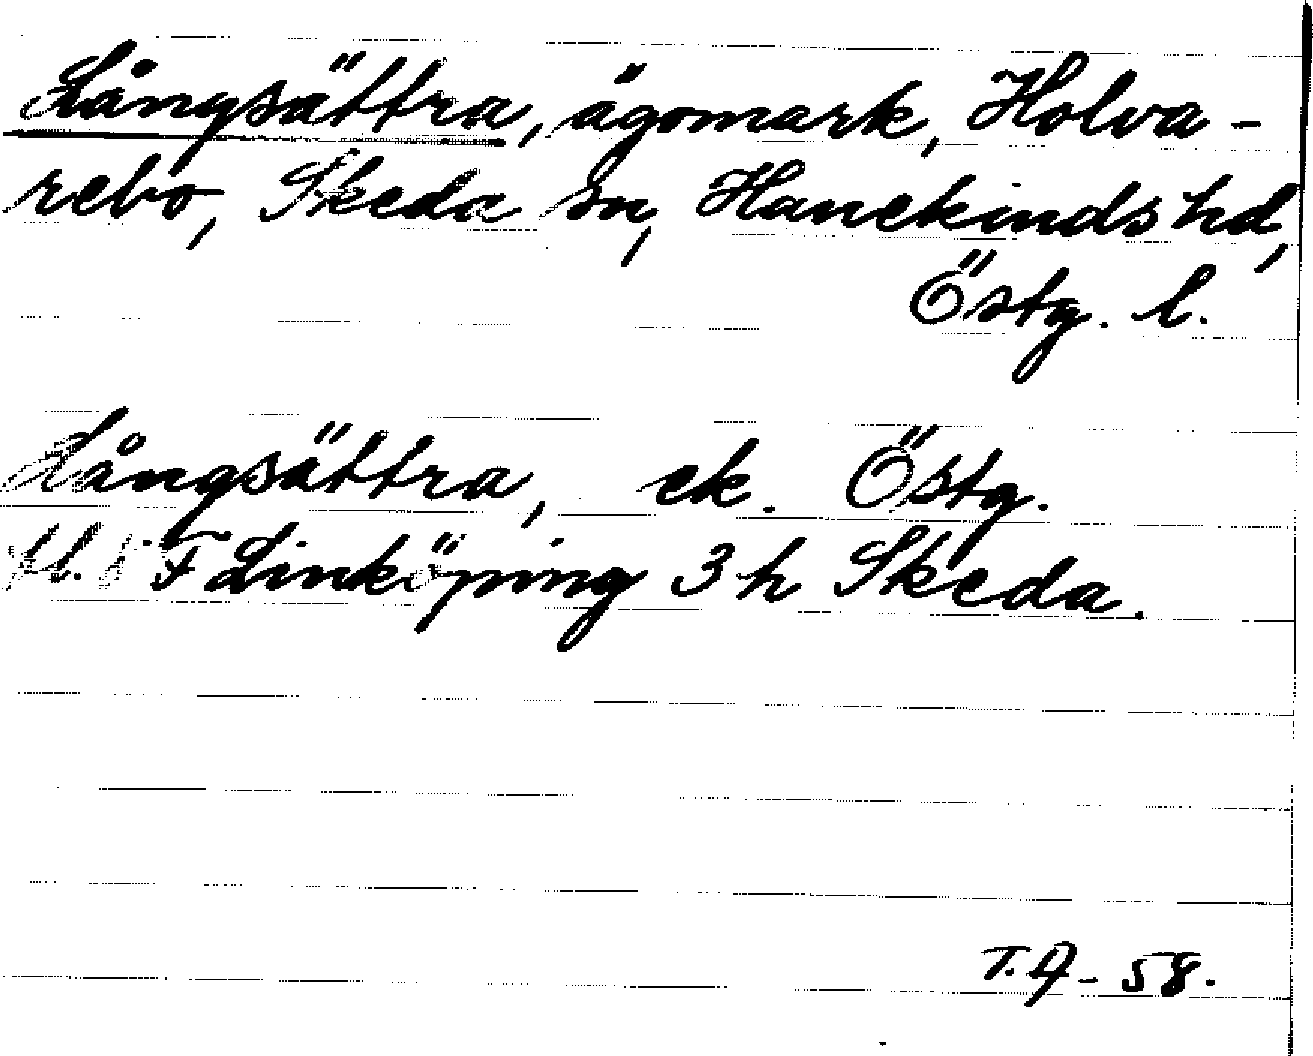 Långsättra, ägomark, Holva-
rebo, Skeda sn, Hanekinds hd,
Östg. l.
Långsättra, ek. Östg.
F Linköping 3 h Skeda.
T.A-58.